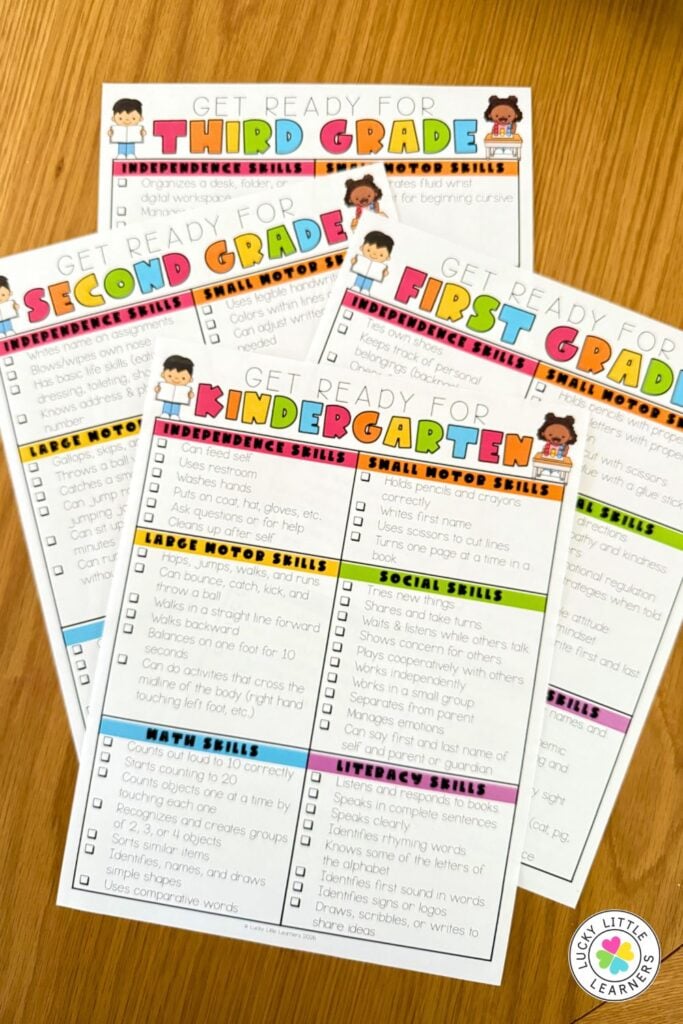 GET READY FOR
THIRD GRADE
INDEPENDENCE SKILLS
Organizes a desk, folder, or
digital workspace
SMALL MOTOR SKILLS
fluid wrist
for beginning cursive
GET READY FOR
SECOND GRADE
INDEPENDENCE SKILLS
Writes name on assignments
Blows/wipes own nose
Has basic life skills
dressing, toileting,
Knows address &
number
SMALL MOTOR
Uses legible
Colors within lines
Can adjust
needed
LARGE MOTOR
Gallops, skips,
Throws a ball
Catches a
Can jump
jumping
Can sit up
minutes
Can run
GET READY FOR
FIRST GRADE
INDEPENDENCE SKILLS
Ties own shoes
Keeps track of personal
belongings
SMALL MOTOR
Holds pencils with
letters with
with scissors
with a glue stick
SKILLS
directions
and kindness
regulation
when told
attitude
mindset
first and last
SKILLS
names and
and
sight
(cat, pig,
GET READY FOR
KINDERGARTEN
INDEPENDENCE SKILLS
Can feed self
Uses restroom
Washes hands
Puts on coat, hat, gloves, etc.
Ask questions or for help
Cleans up after self
SMALL MOTOR SKILLS
Holds pencils and crayons
correctly
Writes first name
Uses scissors to cut lines
Turns one page at a time in a
book
LARGE MOTOR SKILLS
Hops, jumps, walks, and runs
Can bounce, catch, kick, and
throw a ball
Walks in a straight line forward
Walks backward
Balances on one foot for 10
seconds
Can do activities that cross the
midline of the body (right hand
touching left foot, etc.)
SOCIAL SKILLS
Tries new things
Shares and take turns
Waits & listens while others talk
Shows concern for others
Plays cooperatively with others
Works independently
Works in a small group
Separates from parent
Manages emotions
Can say first and last name of
self and parent or guardian
MATH SKILLS
Counts out loud to 10 correctly
Starts counting to 20
Counts objects one at a time by
touching each one
Recognizes and creates groups
of 2, 3, or 4 objects
Sorts similar items
Identifies, names, and draws
simple shapes
Uses comparative words
LITERACY SKILLS
Listens and responds to books
Speaks in complete sentences
Speaks clearly
Identifies rhyming words
Knows some of the letters of
the alphabet
Identifies first sound in words
Identifies signs or logos
Draws, scribbles, or writes to
share ideas
© Lucky Little Learners
LUCKY LITTLE
LEARNERS